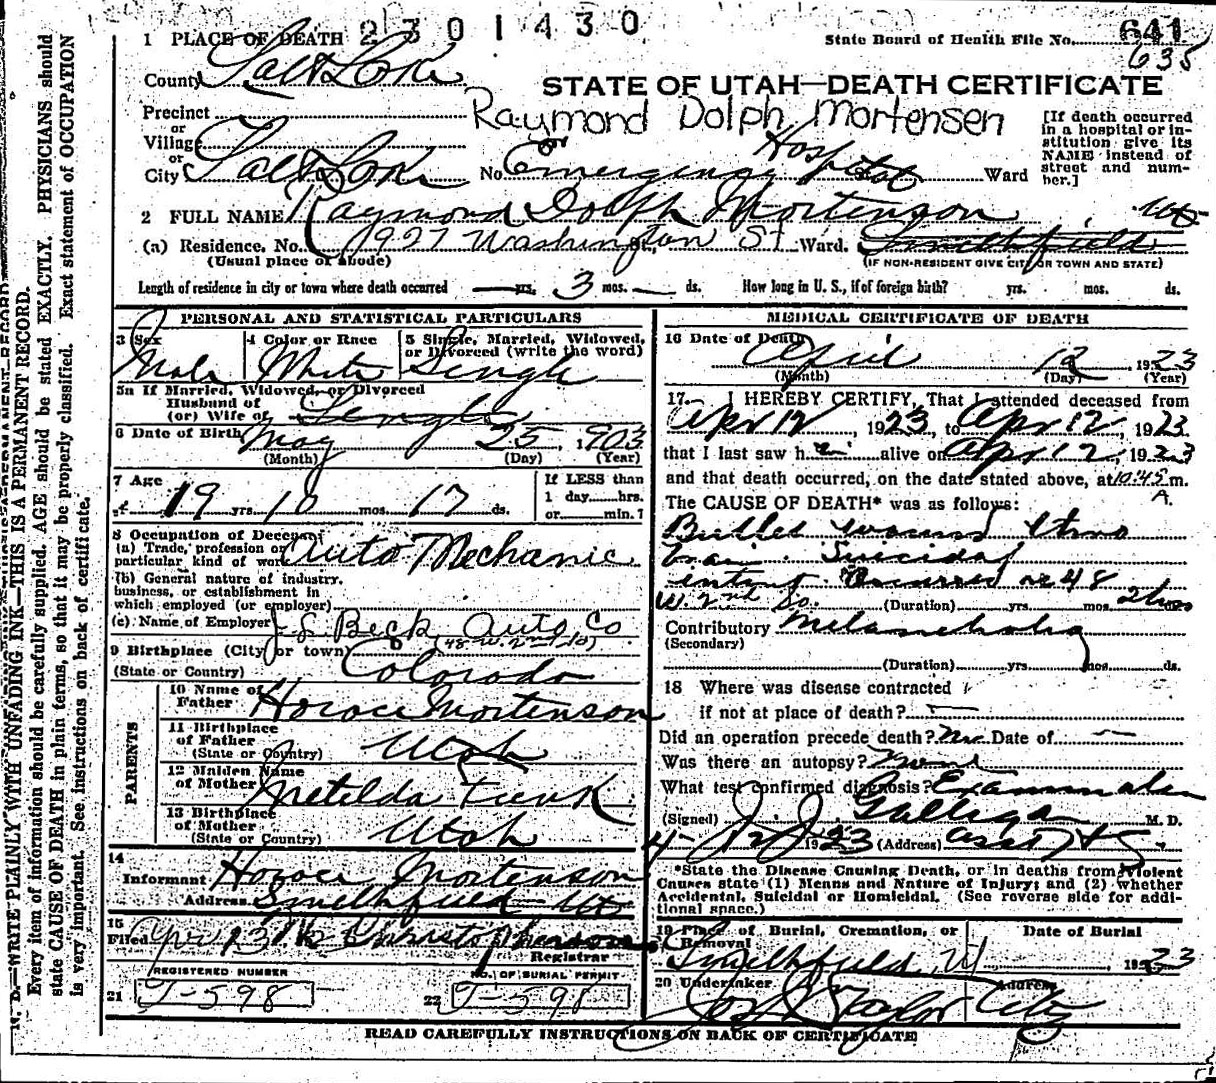 2301430
641
635
1 PLACE OF DEATH
State Board of Health File No.
County Salt Lake
STATE OF UTAH—DEATH CERTIFICATE
Precinct
Raymond Dolph Mortensen
or
Village
or
City Salt Lake No. Emergency Hospital St. Ward
[If death occurred in a hospital or institution give its NAME instead of street and number.]
2 FULL NAME Raymond Dolph Mortenson
(a) Residence. No. 1927 Washington St. Ward. Smithfield Ut
(Usual place of abode) (IF NON-RESIDENT GIVE CITY OR TOWN AND STATE)
Length of residence in city or town where death occurred — yrs. 3 mos. — ds. How long in U. S., if of foreign birth? yrs. mos. ds.
PERSONAL AND STATISTICAL PARTICULARS
3 Sex Male
4 Color or Race White
5 Single, Married, Widowed, or Divorced (write the word) Single
5a If Married, Widowed, or Divorced
Husband of
(or) Wife of Single
6 Date of Birth May 25, 1903
(Month) (Day) (Year)
7 Age 19 yrs. 10 mos. 17 ds.
If LESS than
1 day......hrs.
or......min.?
8 Occupation of Deceased
(a) Trade, profession or particular kind of work Auto Mechanic
(b) General nature of industry. business, or establishment in which employed (or employer)
(c) Name of Employer J. S. Beck Auto Co
(48 W. 2nd So)
9 Birthplace (City or town)
(State or Country) Colorado
PARENTS
10 Name of Father Horace Mortenson
11 Birthplace of Father (State or Country) Utah
12 Maiden Name of Mother Metilda Funk
13 Birthplace of Mother (State or Country) Utah
14
Informant Horace Mortenson
Address Smithfield Ut
15
Filed Apr 13
Registrar
REGISTERED NUMBER
21 T-598
NO. OF BURIAL PERMIT
22 T-598
MEDICAL CERTIFICATE OF DEATH
16 Date of Death April 12, 1923
(Month) (Day) (Year)
17. I HEREBY CERTIFY, That I attended deceased from
Apr 12, 1923, to Apr 12, 1923
that I last saw h im alive on Apr 12, 1923
and that death occurred, on the date stated above, at 10:45 A. m.
The CAUSE OF DEATH* was as follows:
Bullet wound thro
brain. Suicidal
intent Occurred at 48
W. 2nd So. (Duration) yrs. mos. 2 hrs
Contributory Melancholia
(Secondary)
(Duration) yrs. mos. ds.
18 Where was disease contracted
if not at place of death? —
Did an operation precede death? No Date of —
Was there an autopsy? None
What test confirmed diagnosis? Examination
(Signed) Galligan M. D.
4- 1923 (Address) Asst
*State the Disease Causing Death, or in deaths from Violent Causes state (1) Means and Nature of Injury; and (2) whether Accidental, Suicidal or Homicidal. (See reverse side for additional space.)
19 Place of Burial, Cremation, or Removal Smithfield Ut
Date of Burial 1923
20 Undertaker Jos Taylor
Address City
READ CAREFULLY INSTRUCTIONS ON BACK OF CERTIFICATE
N. B.—WRITE PLAINLY WITH UNFADING INK—THIS IS A PERMANENT RECORD.
Every item of information should be carefully supplied. AGE should be stated EXACTLY. PHYSICIANS should
state CAUSE OF DEATH in plain terms, so that it may be properly classified. Exact statement of OCCUPATION
is very important. See instructions on back of certificate.